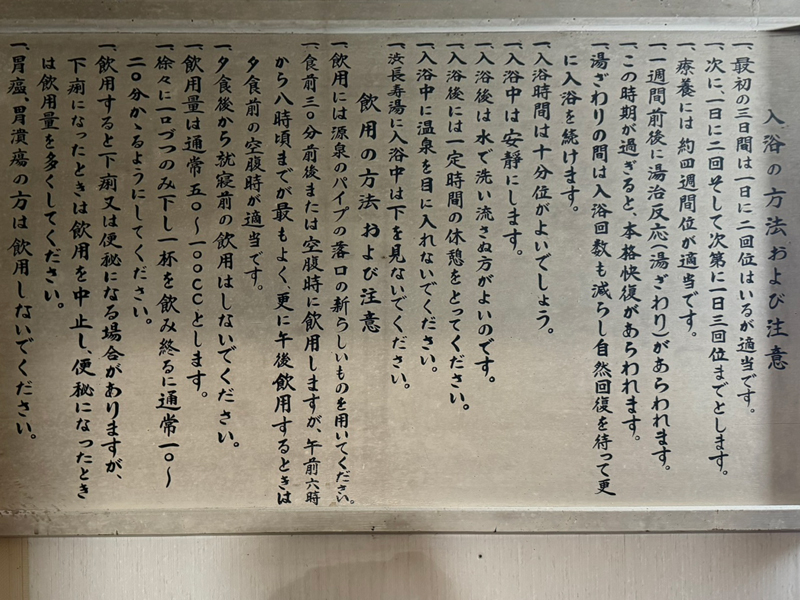 入浴の方法および注意
一、最初の三日間は一日に二回位はいるが適当です。
一、次に、一日に二回そして次第に一日三回位までとします。
一、療養には約四週間位が適当です。
一、一週間前後に湯治反応(湯ざわり)があらわれます。
一、この時期が過ぎると、本格快復があらわれます。
一、湯ざわりの間は入浴回数も減らし自然回復を待って更
に入浴を続けます。
一、入浴時間は十分位がよいでしょう。
一、入浴中は安静にします。
一、入浴後は水で洗い流さぬ方がよいのです。
一、入浴後には一定時間の休憩をとってください。
一、入浴中に温泉を目に入れないでください。
一、浜長寿湯に入浴中は下を見ないでください。
飲用の方法および注意
一、飲用には源泉のパイプの落口の新らしいものを用いてください。
一、食前三〇分前後または空腹時に飲用しますが、午前六時
から八時頃までが最もよく、更に午後飲用するときは
夕食前の空腹時が適当です。
一、夕食後から就寝前の飲用はしないでください。
一、飲用量は通常五〇〜一〇〇CCとします。
一、徐々に一口づつのみ下し一杯を飲み終るに通常一〇〜
二〇分かゝるようにしてください。
一、飲用すると下痢又は便秘になる場合がありますが、
下痢になったときは飲用を中止し、便秘になったとき
は飲用量を多くしてください。
一、胃癌、胃潰瘍の方は飲用しないでください。